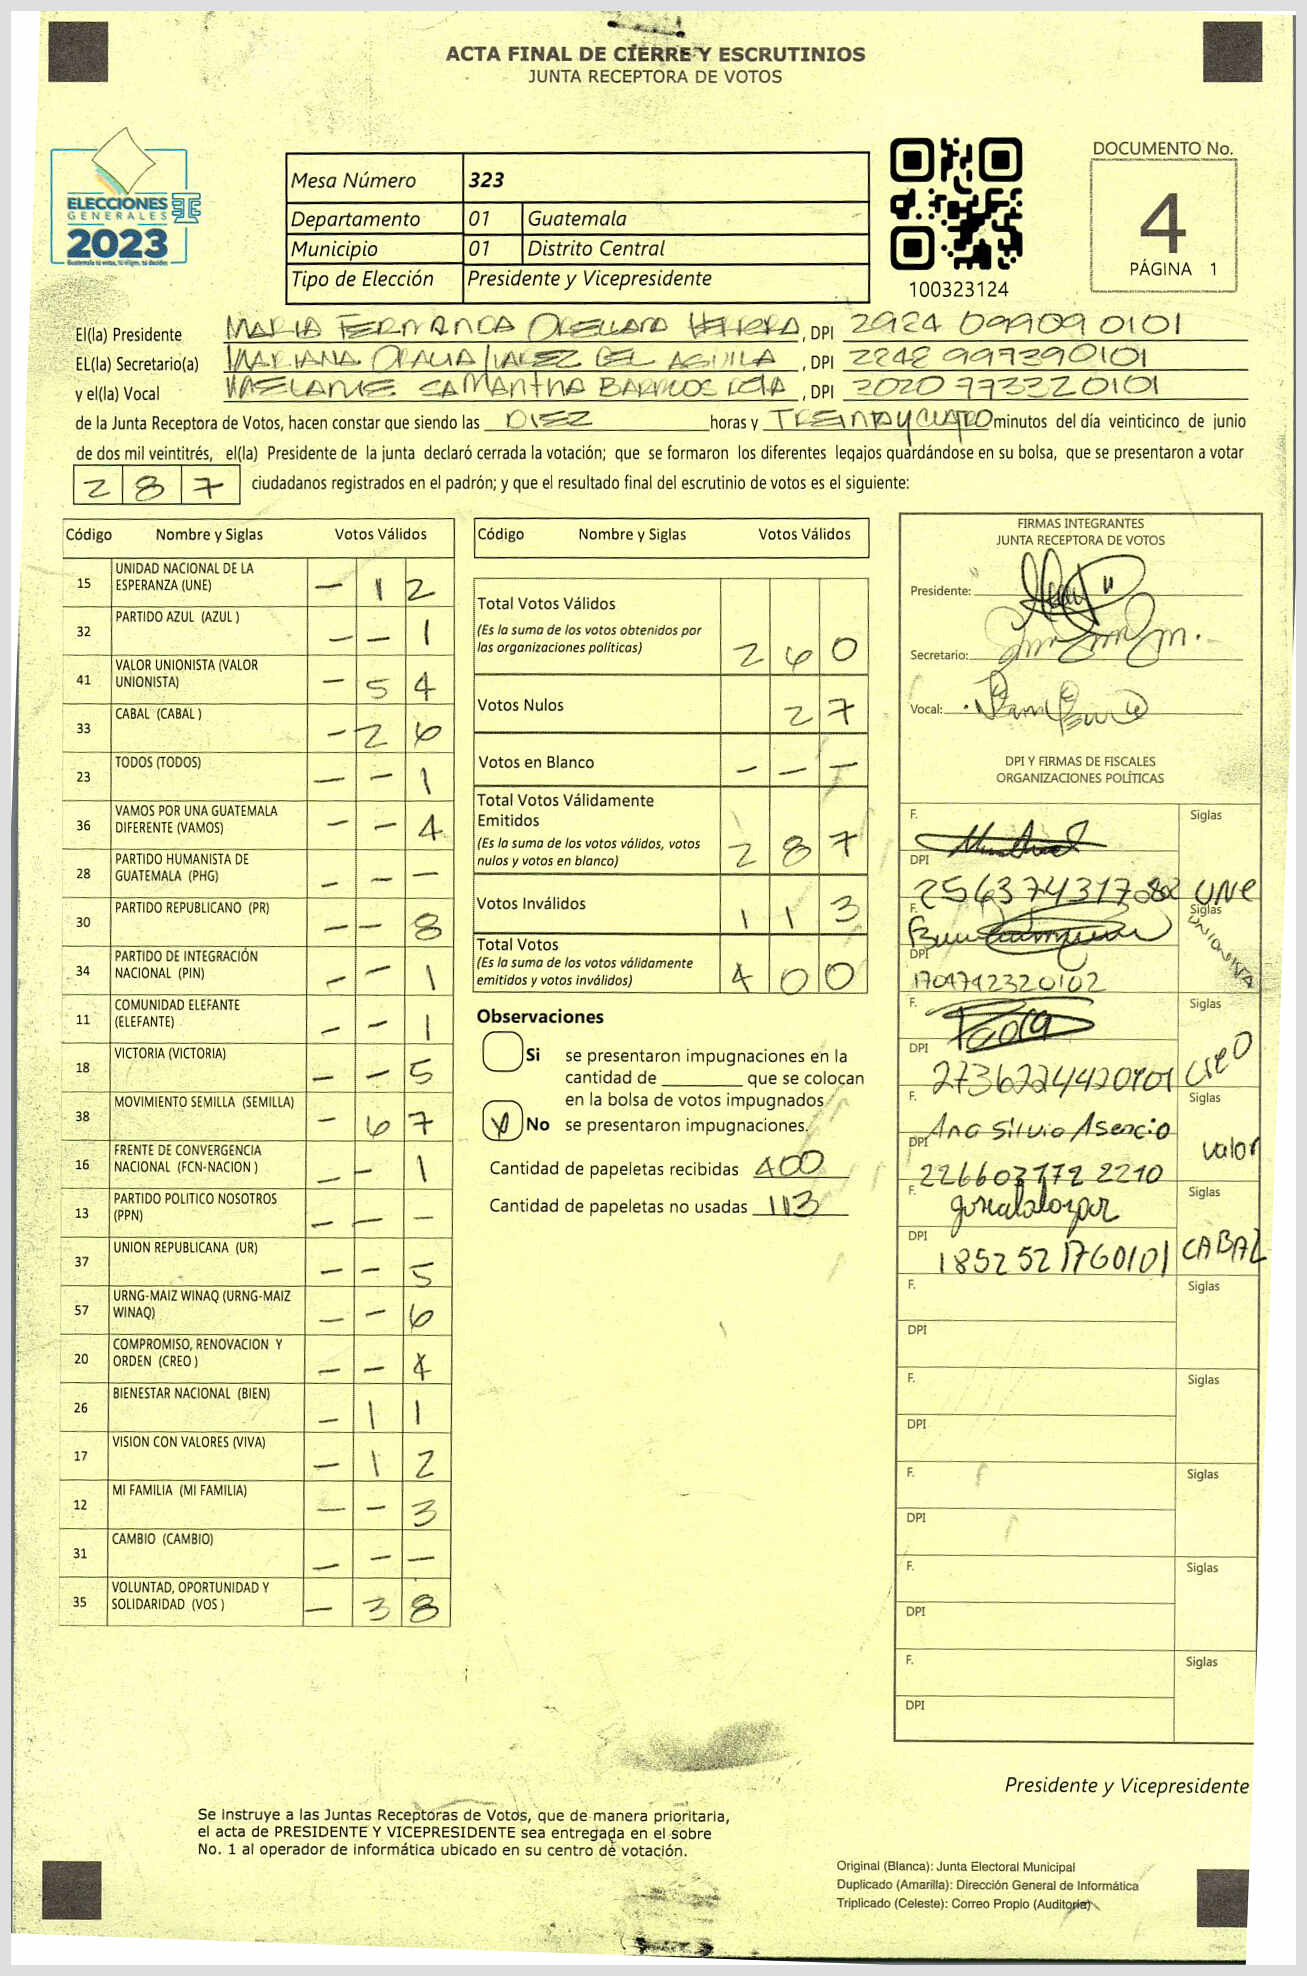 ACTA FINAL DE CIERRE Y ESCRUTINIOS
JUNTA RECEPTORA DE VOTOS
ELECCIONES
GENERALES
2023
Mesa Número 323
Departamento 01 Guatemala
Municipio 01 Distrito Central
Tipo de Elección Presidente y Vicepresidente
100323124
DOCUMENTO No.
4
PÁGINA 1
El(la) Presidente MARIA FERNANDA ORELLANA HERRERA, DPI 2924 09909 0101
EL(la) Secretario(a) MARIANA DEL AGUILA, DPI 2248 99739 0101
y el(la) Vocal MELANIE SAMANTHA BARRIOS, DPI 2020 77332 0101
de la Junta Receptora de Votos, hacen constar que siendo las DIEZ horas y TREINTA Y CUATRO minutos del día veinticinco de junio
de dos mil veintitrés, el(la) Presidente de la junta declaró cerrada la votación; que se formaron los diferentes legajos guardándose en su bolsa, que se presentaron a votar
2 8 7 ciudadanos registrados en el padrón; y que el resultado final del escrutinio de votos es el siguiente:
Código Nombre y Siglas Votos Válidos
15 UNIDAD NACIONAL DE LA ESPERANZA (UNE) - 1 2
32 PARTIDO AZUL (AZUL ) - - 1
41 VALOR UNIONISTA (VALOR UNIONISTA) - 5 4
33 CABAL (CABAL ) - 2 6
23 TODOS (TODOS) - - 1
36 VAMOS POR UNA GUATEMALA DIFERENTE (VAMOS) - - 4
28 PARTIDO HUMANISTA DE GUATEMALA (PHG) - - -
30 PARTIDO REPUBLICANO (PR) - - 8
34 PARTIDO DE INTEGRACIÓN NACIONAL (PIN) - - 1
11 COMUNIDAD ELEFANTE (ELEFANTE) - - 1
18 VICTORIA (VICTORIA) - - 5
38 MOVIMIENTO SEMILLA (SEMILLA) - 6 7
16 FRENTE DE CONVERGENCIA NACIONAL (FCN-NACION ) - - 1
13 PARTIDO POLITICO NOSOTROS (PPN) - - -
37 UNION REPUBLICANA (UR) - - 5
57 URNG-MAIZ WINAQ (URNG-MAIZ WINAQ) - - 6
20 COMPROMISO, RENOVACION Y ORDEN (CREO ) - - 4
26 BIENESTAR NACIONAL (BIEN) - 1 1
17 VISION CON VALORES (VIVA) - 1 2
12 MI FAMILIA (MI FAMILIA) - - 3
31 CAMBIO (CAMBIO) - - -
35 VOLUNTAD, OPORTUNIDAD Y SOLIDARIDAD (VOS ) - 3 8
Código Nombre y Siglas Votos Válidos
Total Votos Válidos
(Es la suma de los votos obtenidos por
las organizaciones políticas) 2 6 0
Votos Nulos 2 7
Votos en Blanco - - -
Total Votos Válidamente
Emitidos
(Es la suma de los votos válidos, votos
nulos y votos en blanco) 2 8 7
Votos Inválidos 1 1 3
Total Votos
(Es la suma de los votos válidamente
emitidos y votos inválidos) 4 0 0
Observaciones
Si se presentaron impugnaciones en la
cantidad de ________ que se colocan
en la bolsa de votos impugnados
No se presentaron impugnaciones.
Cantidad de papeletas recibidas 400
Cantidad de papeletas no usadas 113
FIRMAS INTEGRANTES
JUNTA RECEPTORA DE VOTOS
Presidente:
Secretario:
Vocal:
DPI Y FIRMAS DE FISCALES
ORGANIZACIONES POLÍTICAS
F. Siglas
DPI
UNE
F. Siglas
UNIONISTA
DPI
1704742320102
F. Siglas
DPI
CREO
F. Siglas
Ana Silvia Asencio
DPI valor
226603772 2210
F. Siglas
DPI
1852521760101 CABAL
F. Siglas
DPI
F. Siglas
DPI
F. Siglas
DPI
F. Siglas
DPI
F. Siglas
DPI
Presidente y Vicepresidente
Se instruye a las Juntas Receptoras de Votos, que de manera prioritaria,
el acta de PRESIDENTE Y VICEPRESIDENTE sea entregada en el sobre
No. 1 al operador de informática ubicado en su centro de votación.
Original (Blanca): Junta Electoral Municipal
Duplicado (Amarilla): Dirección General de Informática
Triplicado (Celeste): Correo Propio (Auditoria)